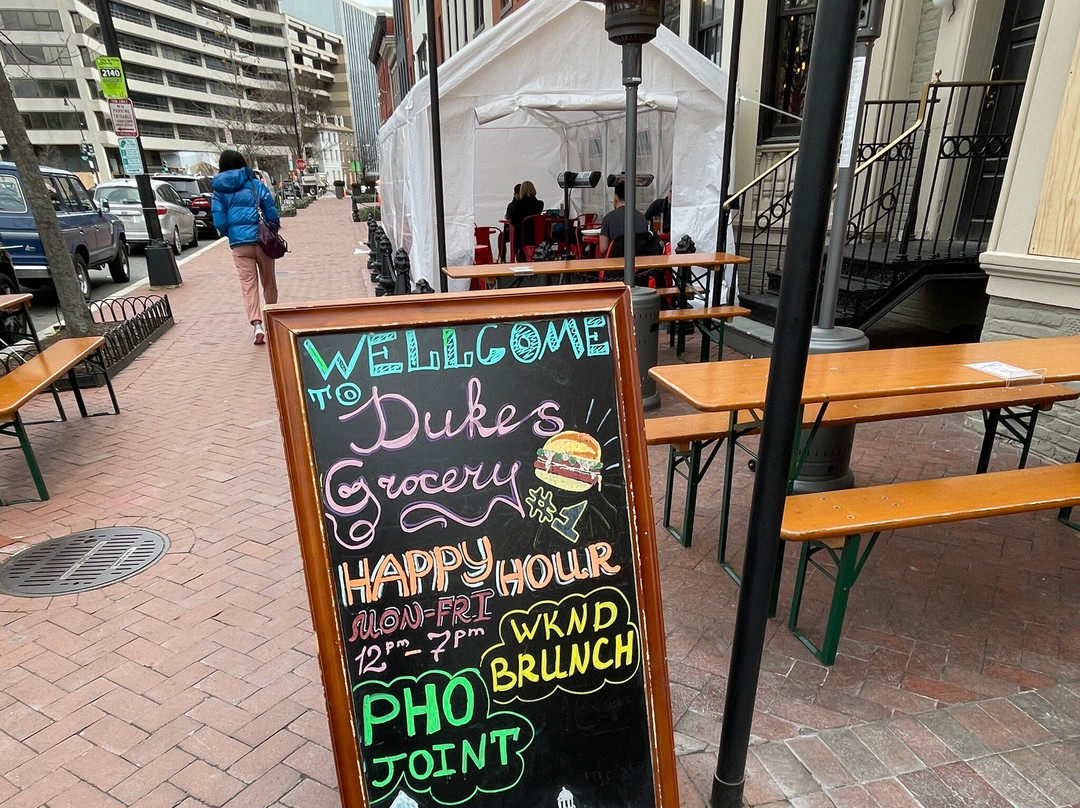 2140
NO
PARKING
WELLCOME
TO
Dukes
Grocery
#1
HAPPY HOUR
MON-FRI
12pm - 7pm
WKND
BRUNCH
PHO
JOINT